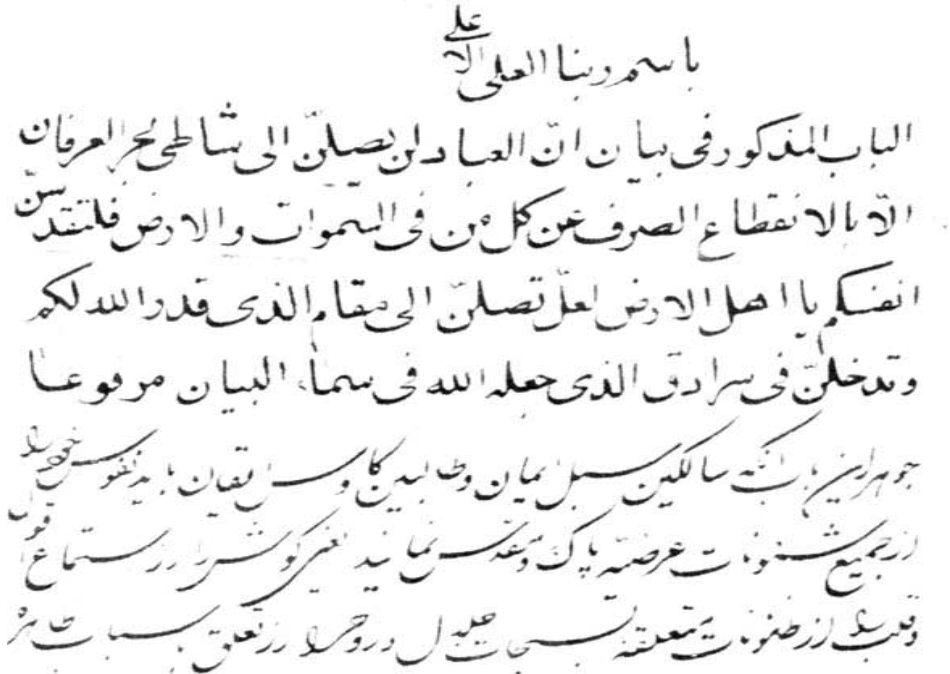 باسم ربنا العلی الاعلی
الباب المذکور فی بیان انّ العباد لن یصلنّ الی شاطئ بحر العرفان
الّا بالانقطاع الصرف عن کل من فی السّموات والارض فلتقدّسنّ
انفسکم یا اهل الارض لعلّ تصلنّ الی مقام الذی قدر الله لکم
وتدخلنّ فی سرادق الذی جعله الله فی سماء البیان مرفوعا
جوهر این باب آنکه سالکین سبیل ایمان و طالبین کاوس ایقان باید نفوس خود را
از جمیع شئونات عرضیّه پاک و مقدّس نمایند یعنی گوش را از استماع اقوال
و قلب را از ظنونات متعلقه بسبحات جلال و روح را از تعلق باسباب ظاهره